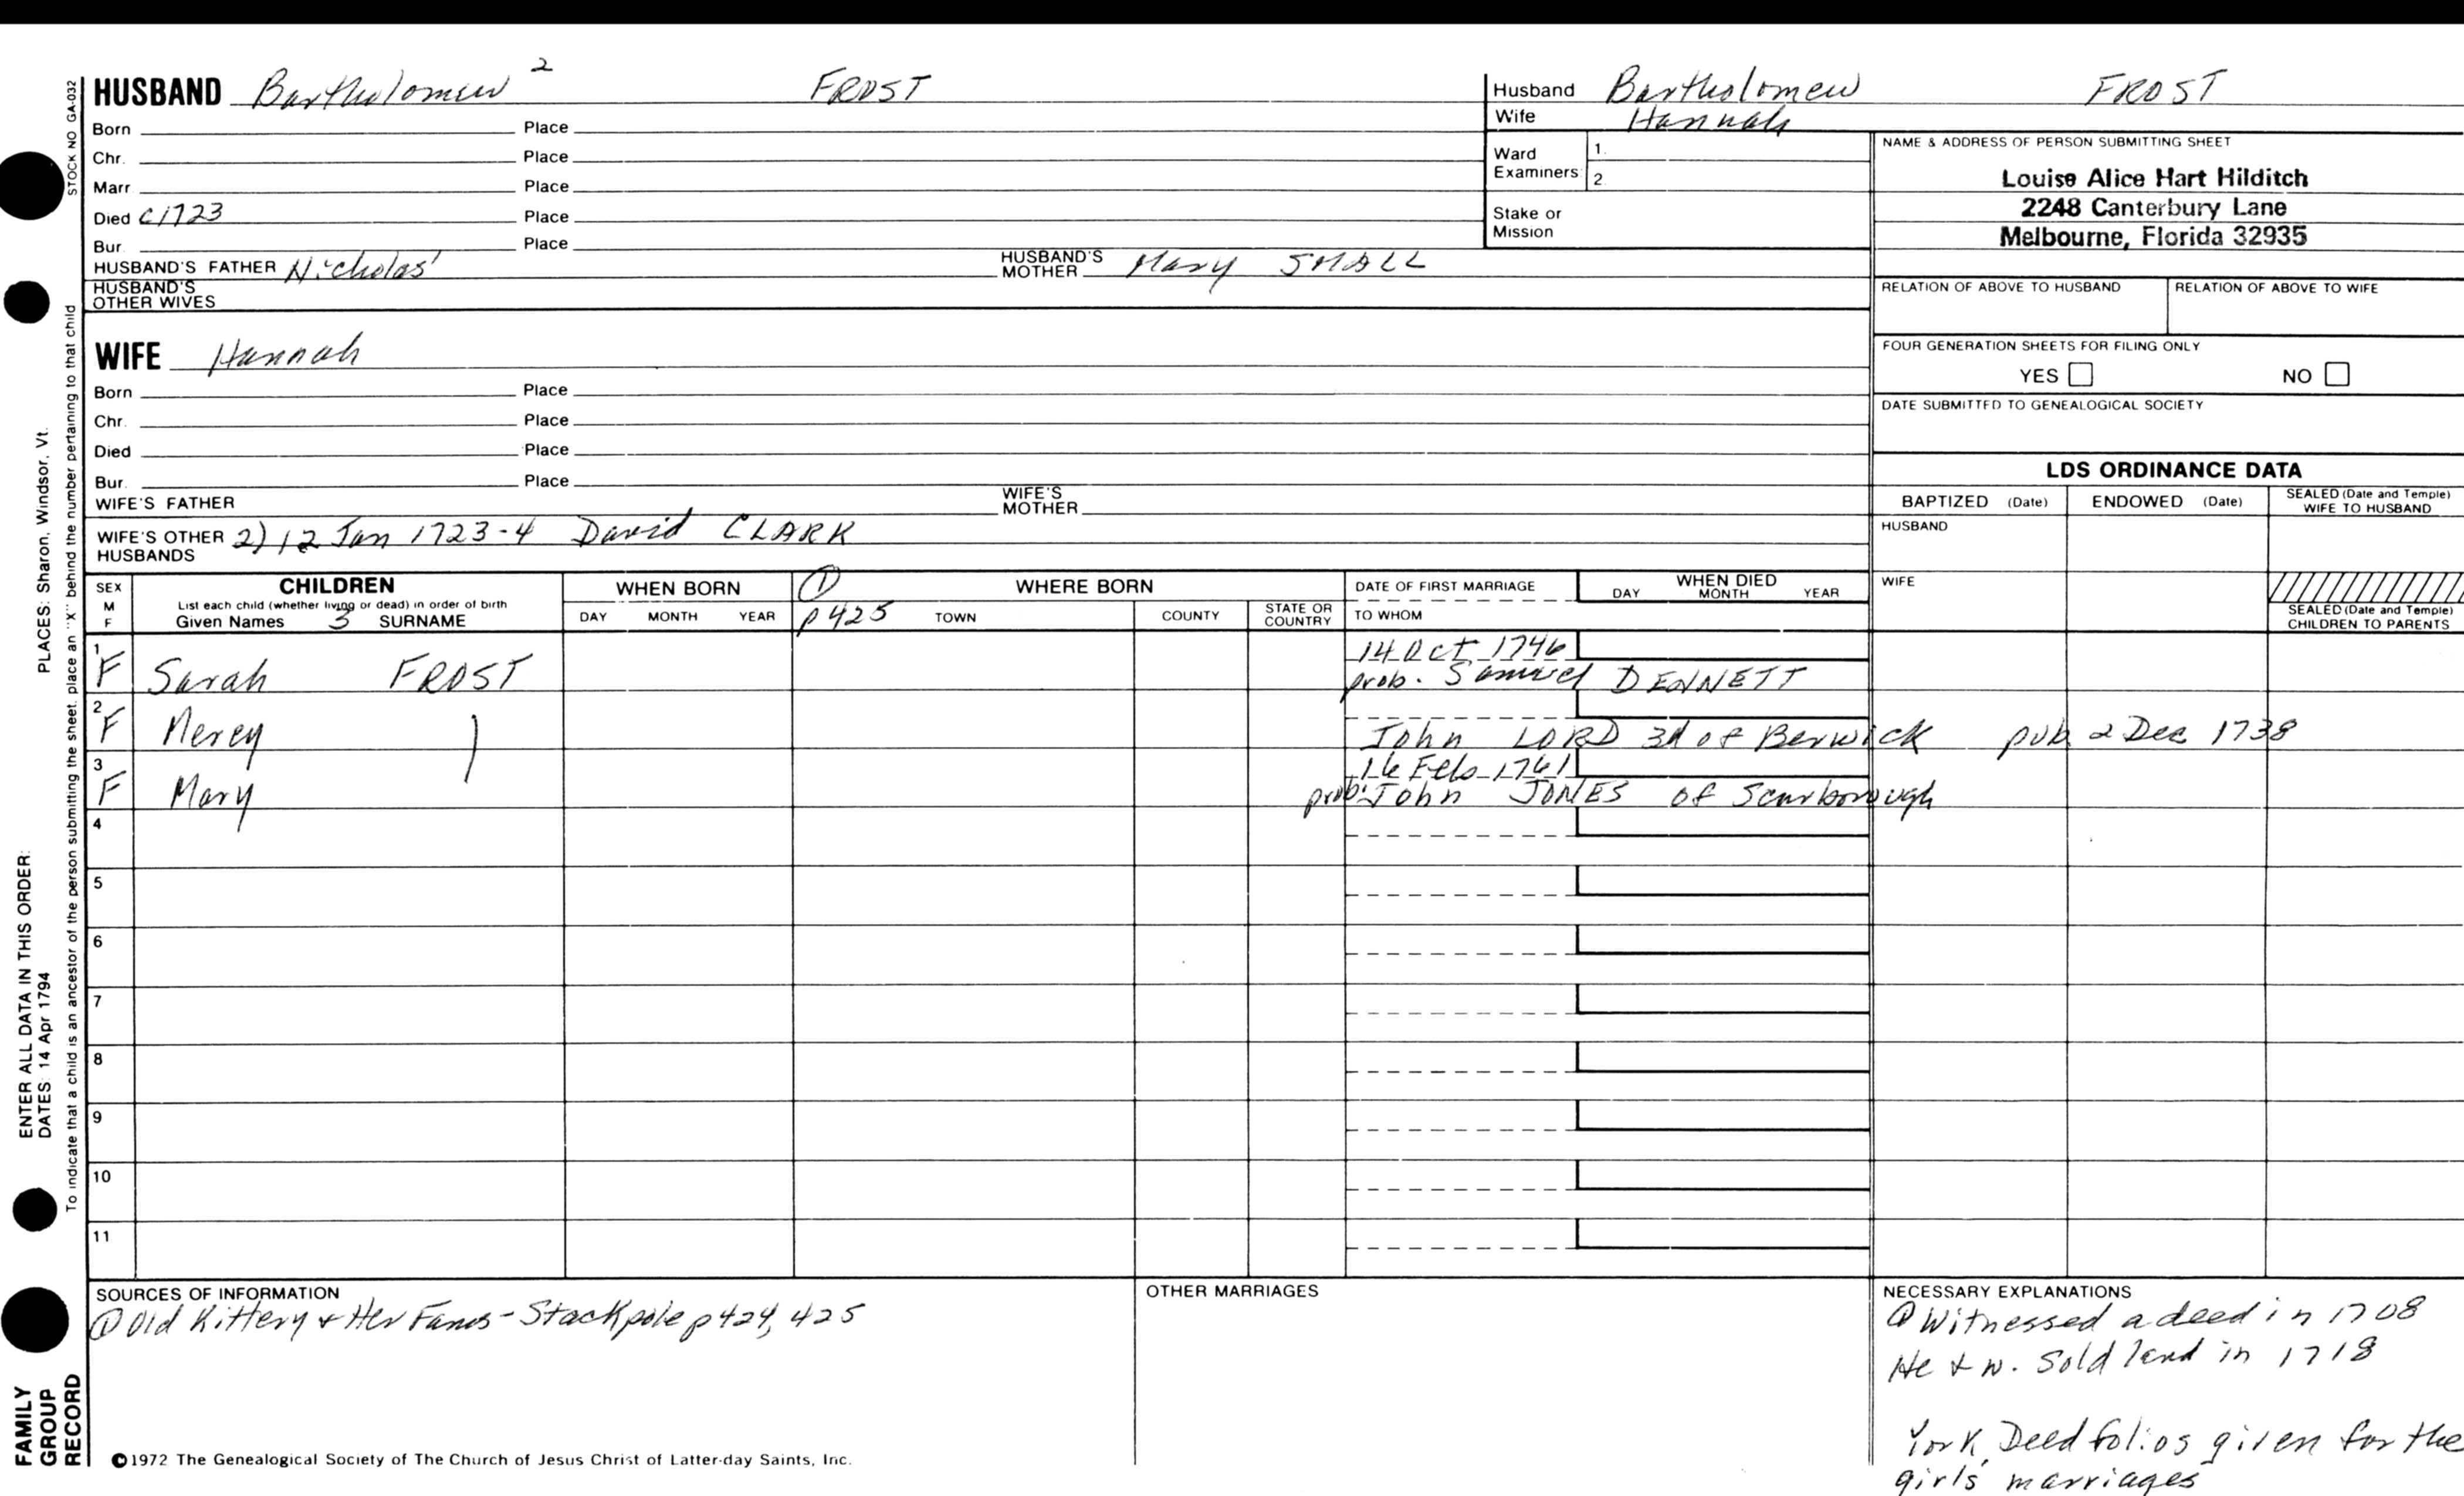 HUSBAND Bartholomew 2 FROST
Born Place
Chr. Place
Marr Place
Died c1723 Place
Bur. Place
HUSBAND'S FATHER Nicholas1 HUSBAND'S MOTHER Mary SMALL
HUSBAND'S OTHER WIVES
Husband Bartholomew FROST
Wife Hannah
Ward Examiners 1. 2.
Stake or Mission
NAME & ADDRESS OF PERSON SUBMITTING SHEET
Louise Alice Hart Hilditch
2248 Canterbury Lane
Melbourne, Florida 32935
RELATION OF ABOVE TO HUSBAND RELATION OF ABOVE TO WIFE
FOUR GENERATION SHEETS FOR FILING ONLY
YES NO
DATE SUBMITTED TO GENEALOGICAL SOCIETY
WIFE Hannah
Born Place
Chr. Place
Died Place
Bur. Place
WIFE'S FATHER WIFE'S MOTHER
WIFE'S OTHER HUSBANDS 2) 12 Jan 1723-4 David CLARK
LDS ORDINANCE DATA
BAPTIZED (Date) ENDOWED (Date) SEALED (Date and Temple) WIFE TO HUSBAND
HUSBAND
WIFE
SEALED (Date and Temple) CHILDREN TO PARENTS
SEX M F
CHILDREN
List each child (whether living or dead) in order of birth
Given Names 3 SURNAME
WHEN BORN
DAY MONTH YEAR
① p425
WHERE BORN
TOWN COUNTY STATE OR COUNTRY
DATE OF FIRST MARRIAGE
TO WHOM
WHEN DIED
DAY MONTH YEAR
14 Oct 1746
1 F Sarah FROST prob. Samuel DENNETT
2 F Mercy John LORD 3d of Berwick pub 2 Dec 1738
16 Feb 1761
3 F Mary prob. John JONES of Scarborough
4
5
6
7
8
9
10
11
SOURCES OF INFORMATION
① Old Kittery & Her Fams - Stackpole p424, 425
OTHER MARRIAGES
NECESSARY EXPLANATIONS
① Witnessed a deed in 1708
He & w. sold land in 1718
York Deed folios given for the
girls' marriages
©1972 The Genealogical Society of The Church of Jesus Christ of Latter-day Saints, Inc.
STOCK NO GA-032
To indicate that a child is an ancestor of the person submitting the sheet, place an "X" behind the number pertaining to that child
ENTER ALL DATA IN THIS ORDER:
PLACES: Sharon, Windsor, Vt.
DATES 14 Apr 1794
FAMILY
GROUP
RECORD